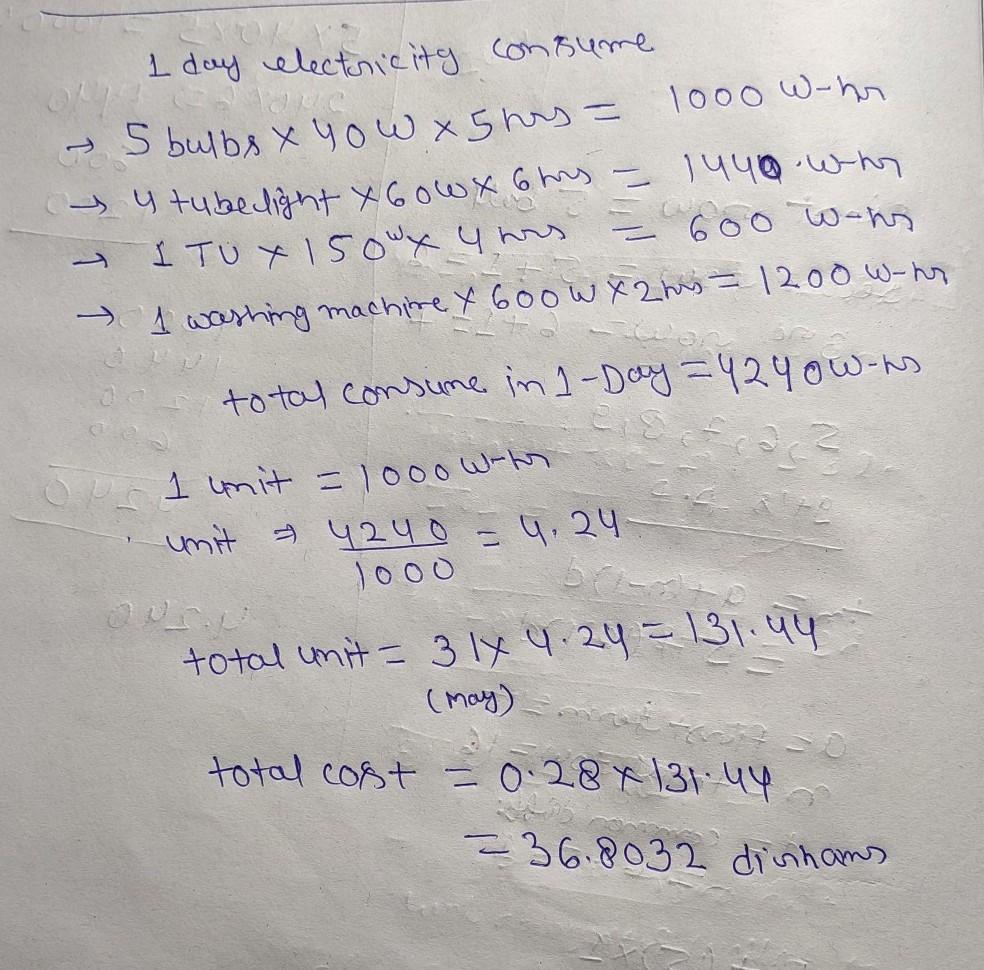 1 day electricity consume
→ 5 bulbs × 40W × 5hrs = 1000 W-hr
→ 4 tubelight × 60W × 6hrs = 1440 W-hr
→ 1 TV × 150W × 4hrs = 600 W-hr
→ 1 washing machine × 600W × 2hrs = 1200 W-hr
total consume in 1-Day = 4240W-hr
1 unit = 1000 W-hr
unit ⇒ 4240/1000 = 4.24
total unit = 31 × 4.24 = 131.44
(may)
total cost = 0.28 × 131.44
= 36.8032 dirhams